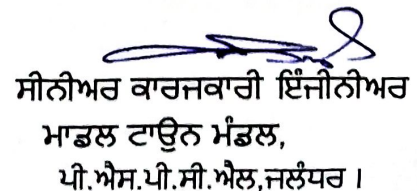 ਸੀਨੀਅਰ ਕਾਰਜਕਾਰੀ ਇੰਜੀਨੀਅਰ
ਮਾਡਲ ਟਾਊਨ ਮੰਡਲ,
ਪੀ.ਐਸ.ਪੀ.ਸੀ.ਐਲ,ਜਲੰਧਰ ।